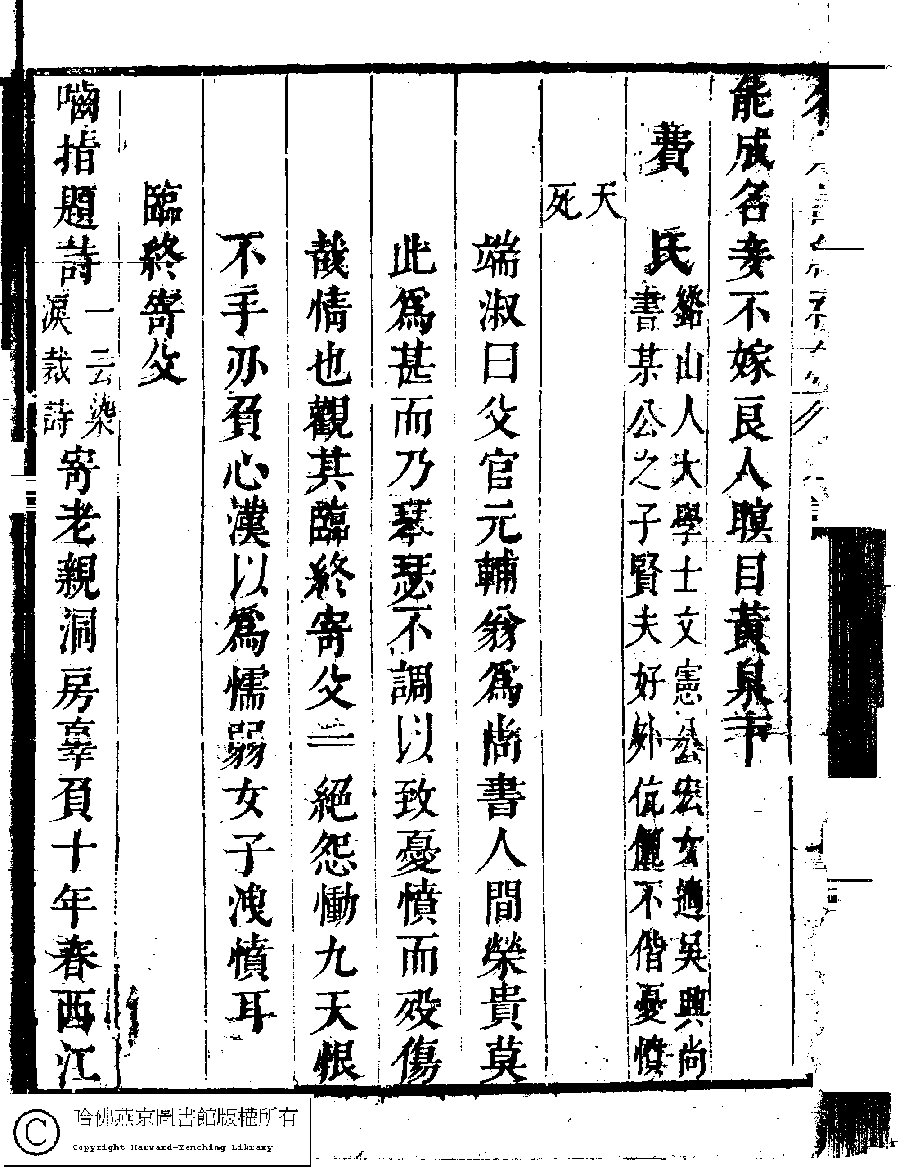 能成名妾不嫁良人瞑目黃泉下
費氏
鉛山人大學士文憲公宏女適吳興尚
書某公之子賢夫好外伉儷不偕憂憤
夭
死
端淑曰父官元輔翁爲尚書人間榮貴莫
此爲甚而乃琴瑟不調以致憂憤而歿傷
哉情也觀其臨終寄父二絕怨慟九天恨
不手刃負心漢以爲懦弱女子洩憤耳
臨終寄父
嚙指題詩
一云染
淚裁詩
寄老親洞房辜負十年春西江
哈佛燕京圖書館版權所有
Copyright Harvard-Yenching Library